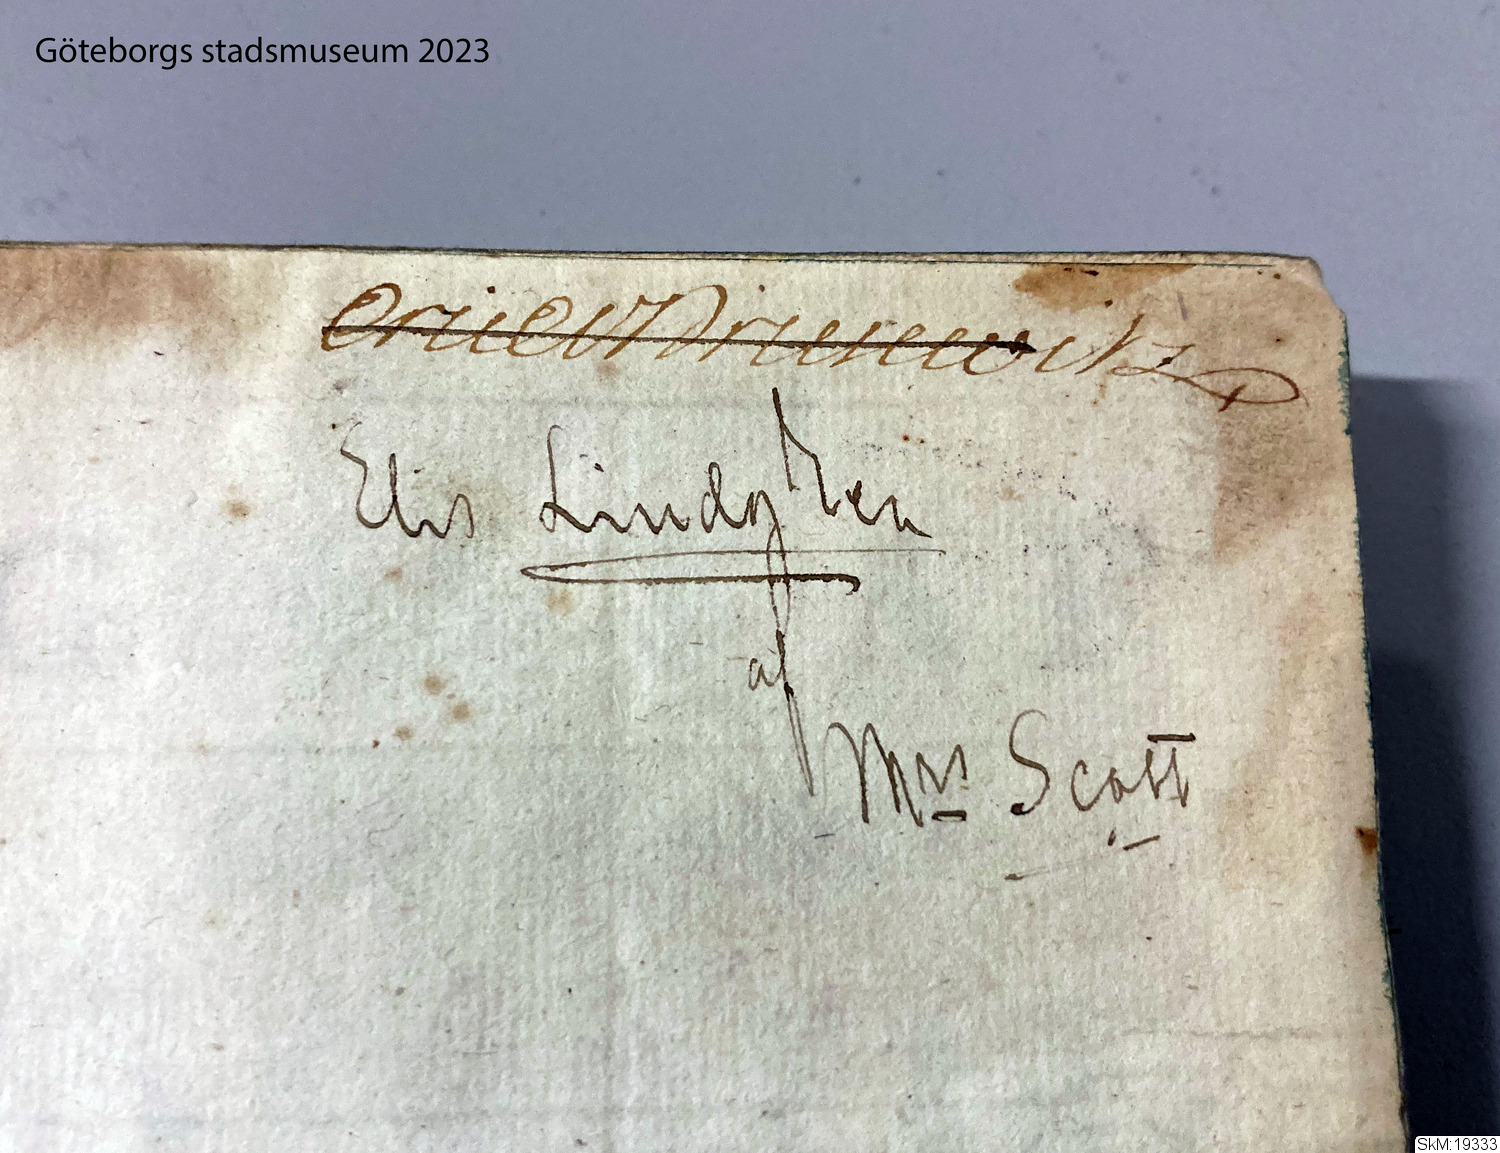 Göteborgs stadsmuseum 2023
Brusewitz
Elis Lindgren
af
Mrs Scott
SkM:19333